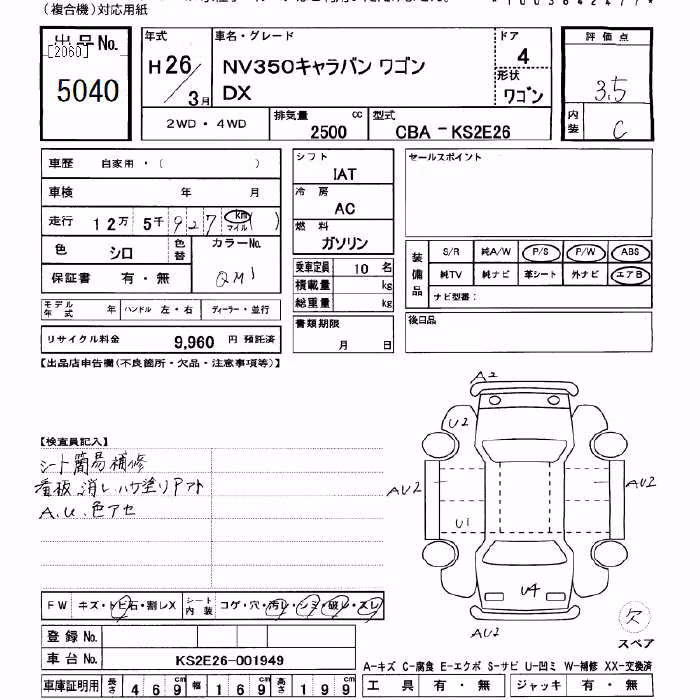 (複合機)対応用紙
*1003642477*
出品No.
[2060]
5040
年式
H 26/3月
車名・グレード
NV350キャラバン ワゴン
DX
ドア
4
形状
ワゴン
評価点
3.5
内装
C
2WD・4WD
排気量
2500 cc
型式
CBA - KS2E26
車歴 自家用・( )
車検 年 月
走行 12万 5千 927 km マイル ( )
色 シロ
色替
カラーNo.
QM1
保証書 有・無
モデル年式 年 ハンドル 左・右 ディーラー・並行
リサイクル料金 9,960 円 預託済
シフト
IAT
冷房
AC
燃料
ガソリン
乗車定員 10 名
積載量 kg
総重量 kg
書類期限
月 日
セールスポイント
装備品
S/R 純A/W P/S P/W ABS
純TV 純ナビ 革シート 外ナビ エアB
ナビ型番:
後日品
【出品店申告欄(不良箇所・欠品・注意事項等)】
【検査員記入】
シート簡易補修
看板消しハケ塗りアト
A.U.色アセ
A2
U2
AU2
AU2
U1
U4
AU2
欠
スペア
FW キズ・トビ石・割レX シート内装 コゲ・穴・汚レ・シミ・破レ・スレ
登録 No.
車台 No. KS2E26-001949
車庫証明用 長さ 469cm 幅 169cm 高さ 199cm
A-キズ C-腐食 E-エクボ S-サビ U-凹ミ W-補修 XX-交換済
工具 有・無 ジャッキ 有・無